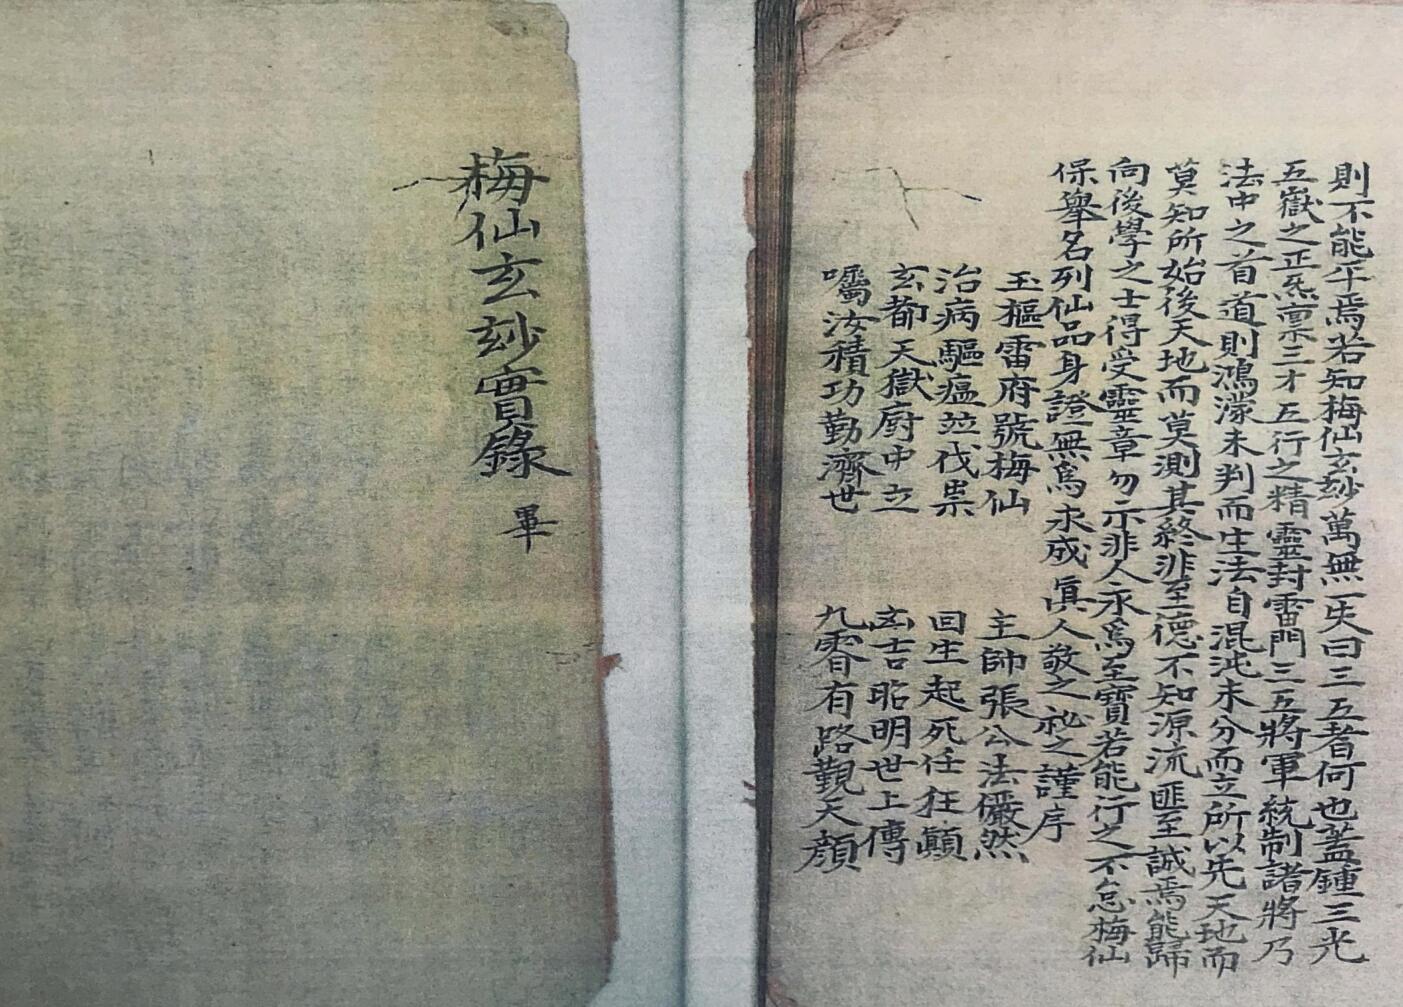 則不能平焉若知梅仙玄玅萬無一失曰三五者何也蓋鍾三光
五嶽之正炁稟三才五行之精靈封雷門三五將軍統制諸將乃
法中之首道則鴻濛未判而生法自混沌未分而立所以先天地而
莫知所始後天地而莫測其終非至德不知源流匪至誠焉能歸
向後學之士得受靈章勿示非人永為至寶若能行之不怠梅仙
保舉名列仙品身證無為永成眞人敬之祕之謹序
玉樞雷府號梅仙 主帥張公法儼然
治病驅瘟並伐祟 回生起死任狂顛
玄都天獄廚中立 凶吉昭明世上傳
囑汝積功勤濟世 九霄有路覲天顔
梅仙玄玅實錄 畢